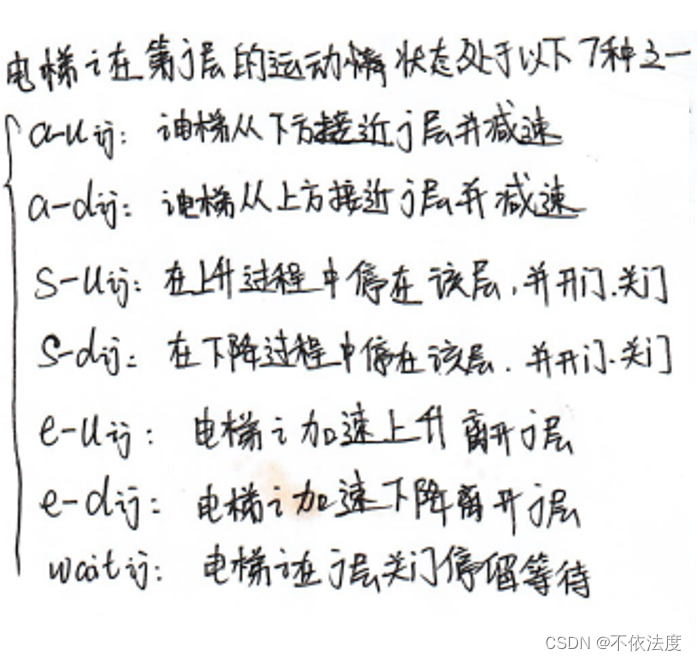 电梯i在第j层的运动状态处于以下7种之一
a-uij: i电梯从下方接近j层并减速
a-dij: i电梯从上方接近j层并减速
s-uij: 在上升过程中停在该层,并开门.关门
s-dij: 在下降过程中停在该层.并开门.关门
e-uij: 电梯i加速上升离开j层
e-dij: 电梯i加速下降离开j层
waitij: 电梯i在j层关门停留等待
CSDN @不依法度